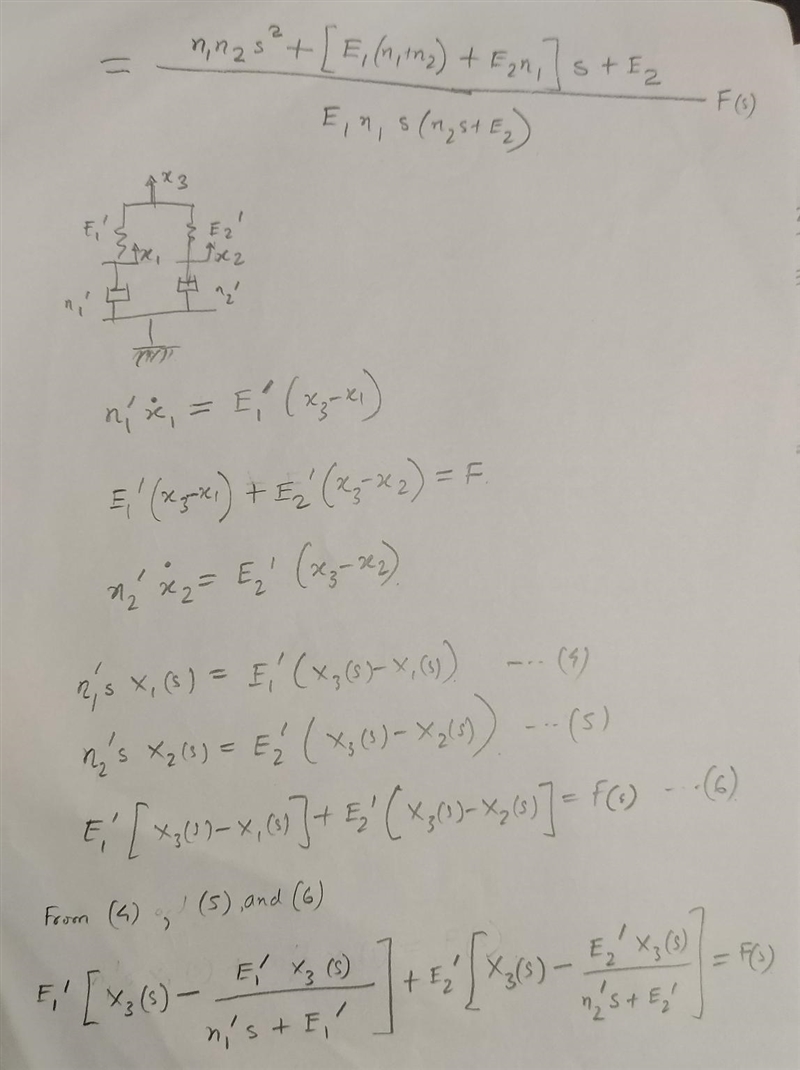 = n₁n₂s² + [E₁(n₁+n₂) + E₂n₁] s + E₂ / E₁n₁ s(n₂s+E₂) F(s)
x₃
E₁' E₂'
x₁ x₂
n₁' n₂'
n₁'ẋ₁ = E₁'(x₃-x₁)
E₁'(x₃-x₁) + E₂'(x₃-x₂) = F.
n₂'ẋ₂ = E₂'(x₃-x₂).
n₁'s X₁(s) = E₁'(X₃(s)-X₁(s)) ---- (4)
n₂'s X₂(s) = E₂'(X₃(s)-X₂(s)) ---- (5)
E₁'[X₃(s)-X₁(s)] + E₂'[X₃(s)-X₂(s)] = F(s) ---- (6)
From (4), (5), and (6)
E₁'[X₃(s) - E₁' X₃(s) / n₁'s + E₁'] + E₂'[X₃(s) - E₂' X₃(s) / n₂'s + E₂'] = F(s)